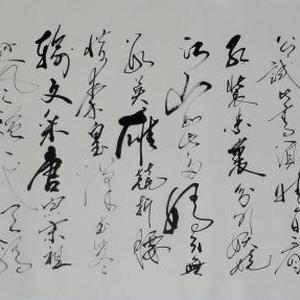 公試比高須晴日看
紅裝素裹分外妖嬈
江山如此多嬌引無
數英雄競折腰
惜秦皇漢武略
輸文采唐宗宋祖
風騷一代天驕